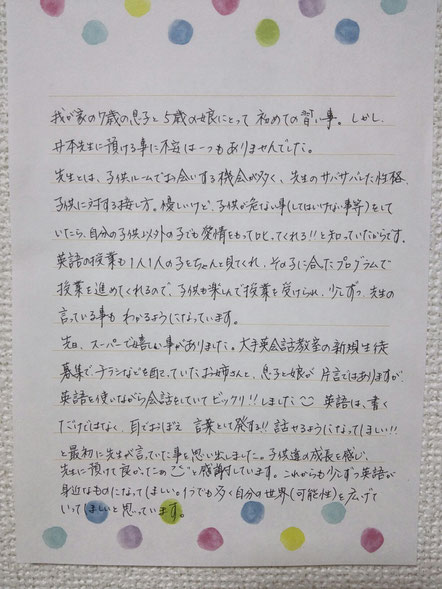 我が家の7歳の息子と5歳の娘にとって 初めての習い事。しかし、
井本先生に預ける事に不安は一つもありませんでした。
先生とは、子供ルームでお会いする機会が多く、先生のサバサバした性格、
子供に対する接し方。優しいけど、子供が危ない事(してはいけない事等)をして
いたら、自分の子供以外の子でも愛情をもって叱ってくれる!!と知っていたからです。
英語の授業も1人1人の子をちゃんと見てくれ、その子に合ったプログラムで
授業を進めてくれるので、子供も楽しんで授業を受けられ、少しずつ先生の
言っている事も わかるようになっています。
先日、スーパーで嬉しい事がありました。大手英会話教室の新規生徒
募集でチラシなどを配っていたお姉さんと、息子と娘が 片言ではありますが、
英語を使いながら会話をしていてビックリ!!しました 英語は、書く
だけではなく、耳でおぼえ 言葉として発する!! 話せるようになってほしい!!
と最初に先生が言っていた事を思い出しました。子供達の成長を感じ、
先生に預けて良かったぁ と感謝しています。これからも少しずつ英語が
身近なものになってほしい。1つでも多く自分の世界(可能性)を広げて
いってほしいと思っています。